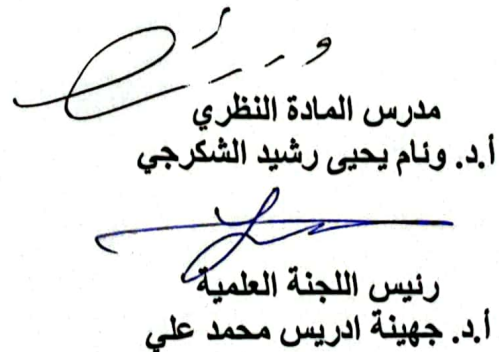 مدرس المادة النظري
أ.د. وئام يحيى رشيد الشكرجي
رئيس اللجنة العلمية
أ.د. جهينة ادريس محمد علي